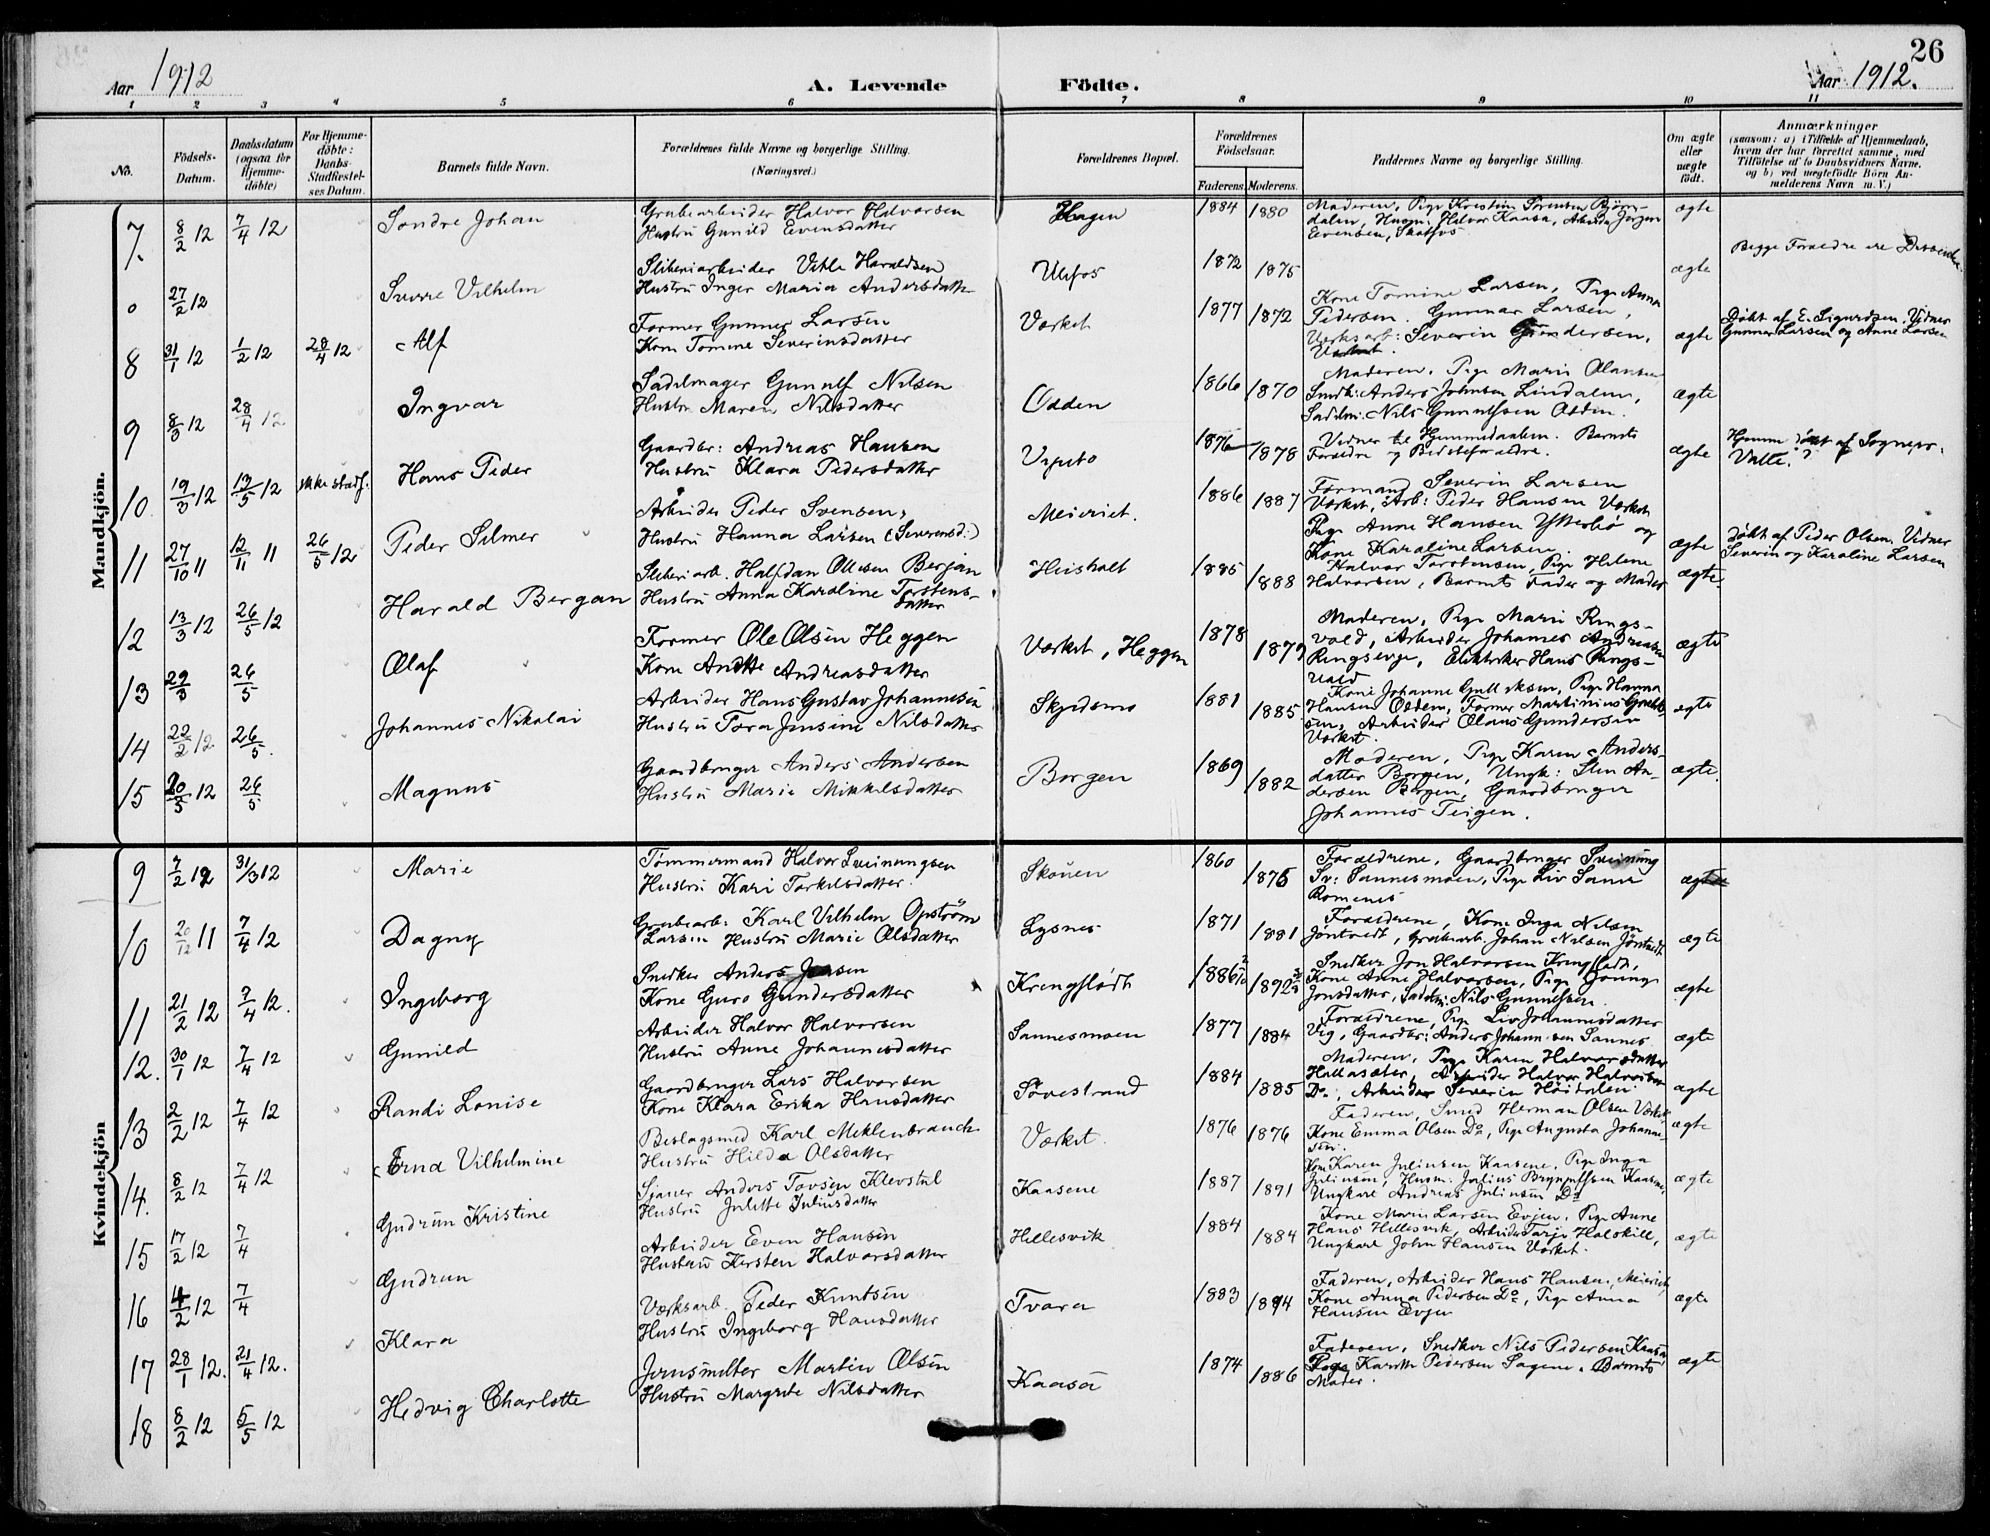 26
Aar 1912
A. Levende Födte.
Aar 1912.
1 2 3 4 5 6 7 8 9 10 11
No.
Födsels-Datum.
Daabsdatum (ogsaa for Hjemme-döbte)
For Hjemme-döbte: Daabs-Stadfæstel-ses Datum.
Barnets fulde Navn.
Forældrenes fulde Navne og borgerlige Stilling. (Næringsvei.)
Forældrenes Bopæl.
Forældrenes Födselsaar.
Faderens. Moderens.
Faddernes Navne og borgerlige Stilling.
Om ægte eller uægte födt.
Anmærkninger
(saasom: a) i Tilfælde af Hjemmedaab, hvem der har forrettet samme, med Tilföielse af to Daabsvidners Navne, og b) ved uægtefödte Börn An-melderens Navn m. V.)
Mandkjön.
7. 8/2 12 7/4 12 Sondre Johan
Grubearbeider Halvor Halvorsen
Hustru Gunild Evensdatter
Hagen 1884 1880
Moderen, Pige Kristine Sørensen Bjørn-
dalen, Husm: Halvor Kaasa, Arbeider Jørgen
Evensen, Skotfos
ægte
0 27/2 12 Sverre Vilhelm
Sliberiarbeider Vetle Haraldsen
Hustru Inger Maria Andersdatter
Ulefos 1872 1875 ægte
Begge Forældre ere Dissentere.
8 31/1 12 1/2 12 28/4 12 Alf
Former Gunner Larsen
Kone Tomine Severinsdatter
Værket 1877 1872
Kone Tomine Larsen, Pige Anna
Pedersen. Gunnar Larsen,
Verksarb: Severin Gundersen,
Værket.
ægte
Døbt af E. Sigurdsen, Vidner
Gunner Larsen og Anne Larsen
9 8/3 12 28/4 12 Ingvar
Sadelmager Gunulf Nilsen
Hustru Maren Nilsdatter
Odden 1866 1870
Moderen, Pige Marie Olausen
Snedk: Anders Johnsen Lindalen,
Sadelm: Nils Gunulfsen Odden.
ægte
10. 19/3 12 13/5 12 ikke stadf. Hans Peder
Gaardbr: Andreas Hansen
Hustru Klara Pedersdatter
1876 1878
Vidner til Hjemmedaaben. Barnets
Forældre og Bedsteforældre.
ægte
Hjemmedøbt af Sognepr.
11 27/10 11 12/11 11 26/5 12 Peder Selmer
Arbeider Peder Svensen,
Hustru Hanna Larsen (Severinsd:)
Meieriet. 1886 1887
Formand Severin Larsen
Værket, Arb: Peder Hansen Værket
Pige Anne Hansen Ytterbø og
Kone Karoline Larsen.
ægte
Døbt af Peder Olsen. Vidner
Severin og Karoline Larsen
12 13/3 12 26/5 12 Harald Bergan
Sliberiarb. Halfdan Ollesen Bergan
Hustru Anna Karoline Torstens-
datter
Heisholt 1885 1888
Halvor Torstensen, Pige Helene
Halvorsen, Barnets Fader og Moder
ægte
13 29/3 26/5 Olaf
Former Ole Olsen Heggen
Kone Anette Andreasdatter
Værket, Heggen 1878 1879
Moderen, Pige Marie Rings-
vold, Arbeider Johannes Andreasen
Ringsevje, Elektriker Hans Rings-
vold
ægte
14 22/2 12 26/5. Johannes Nikolai
Arbeider Hans Gustav Johannesen
Hustru Tora Jensine Nilsdatter
Skjedsmo 1881 1885
Kone Johanne Gulliksen, Pige Hanna
Hansen Odden, Former Martinius
Arbeider Olaus Gundersen
Værket.
ægte
15 20/3 12 26/5 Magnus
Gaardbruger Anders Andersen
Hustru Marie Mikkelsdatter
Borgen 1869 1882
Moderen, Pige Karen Anders-
datter Borgen, Ungk: Sten An-
dersen Borgen, Gaardbruger
Johannes Teigen.
ægte.
Kvindekjön
9 7/2 12 31/3 12 Marie
Tømmermand Halvor Sveinungsen
Hustru Kari Torkelsdatter.
Skouen 1860 1875
Forældrene, Gaardbruger Sveinung
Sv: Sannesmoen, Pige Liv Sanne
Romenes
ægte
10 20/12 11 7/4 12 Dagny
Grubearb: Karl Vilhelm Opstrøm
Larsen Hustru Marie Olsdatter
Lysnes 1871 1881
Forældrene, Kone Inga Nilsen
Jøntvedt, Grubearb. Johan Nilsen Jøntvedt
ægte
11 21/2 12 7/4 12. Ingeborg
Snedker Anders Jonsen
Kone Guro Gundersdatter
Krengflødt 1886 1892
Snedker Jon Halvorsen Krengflødt,
Kone Anne Halvorsen, Pige Gunnild
Jonsdatter, Sadelm: Nils Gunulfsen.
ægte
12. 30/1 12 7/4 12 Gunild
Arbeider Halvor Halvorsen
Hustru Anne Johannesdatter
Sannesmoen 1877 1884
Forældrene, Pige Liv Johannesdatter
Vig, Gaardbr: Anders Johannesen Sannes
ægte
13 2/2 12 7/4 12 Randi Lovise
Gaardbruger Lars Halvorsen
Kone Klara Erika Hansdatter
Søvestrand 1884 1885
Moderen, Pige Karen Halvorsdatter
Hallasæter, Arbeider Halvor Halvorsen
Do., Arbeider Severin Høidalen
ægte
14. 8/2 12 7/4 12 Erna Vilhelmine
Beslagsmed Karl Meklenbrauck
Hustru Hilda Olsdatter
Værket. 1876 1876
Faderen, Smed Herman Olsen Værket,
Kone Emma Olsen Do, Pige Augusta Johanne-
sen.
ægte
15 17/2 12 7/4 Gudrun Kristine
Sjauer Anders Tovsen Klevstul
Hustru Julette Juliusdatter
Kaasene 1887 1891
Kone Karen Juliusen Kaasene, Pige Inga
Juliusen, Husm: Julius Brynulfsen Kaasene,
Ungkarl Andreas Juliusen Do
ægte
16 4/2 12 7/4 Gudrun
Arbeider Even Hansen
Hustru Kersten Halvorsdatter
Hellesvik 1884 1884
Kone Marie Larsen Evjen, Pige Anne
Hans Hellesvik, Arbeider Tarje Halskill,
Ungkarl John Hansen Værket.
ægte
17 28/1 12. 21/4 12. Klara
Værksarb. Peder Knutsen
Hustru Ingeborg Hansdatter
Tvara 1883 1884
Faderen, Arbeider Hans Hansen, Meieriet,
Kone Anna Pedersen Do, Pige Anna
Hansen Evjen
ægte
18 8/2 12 5/5 12 Hedvig Charlotte
Jernsmelter Martin Olsen
Hustru Margrete Nilsdatter
Kaasa 1874 1886
Faderen, Snedker Nils Pedersen Kaasa,
Pige Karethe Pedersen Sagene, Barnets
Moder.
ægte